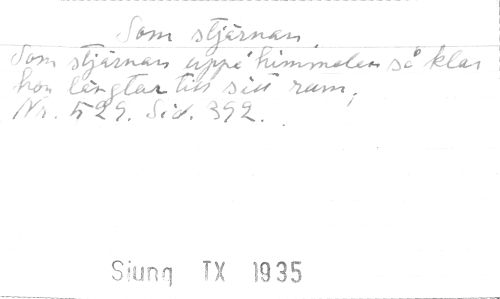 Som stjärnan.
Som stjärnan uppå himmelen så klar
hon längtar till sitt rum,
Nr. 529. Sid. 392.
Sjung IX 1935